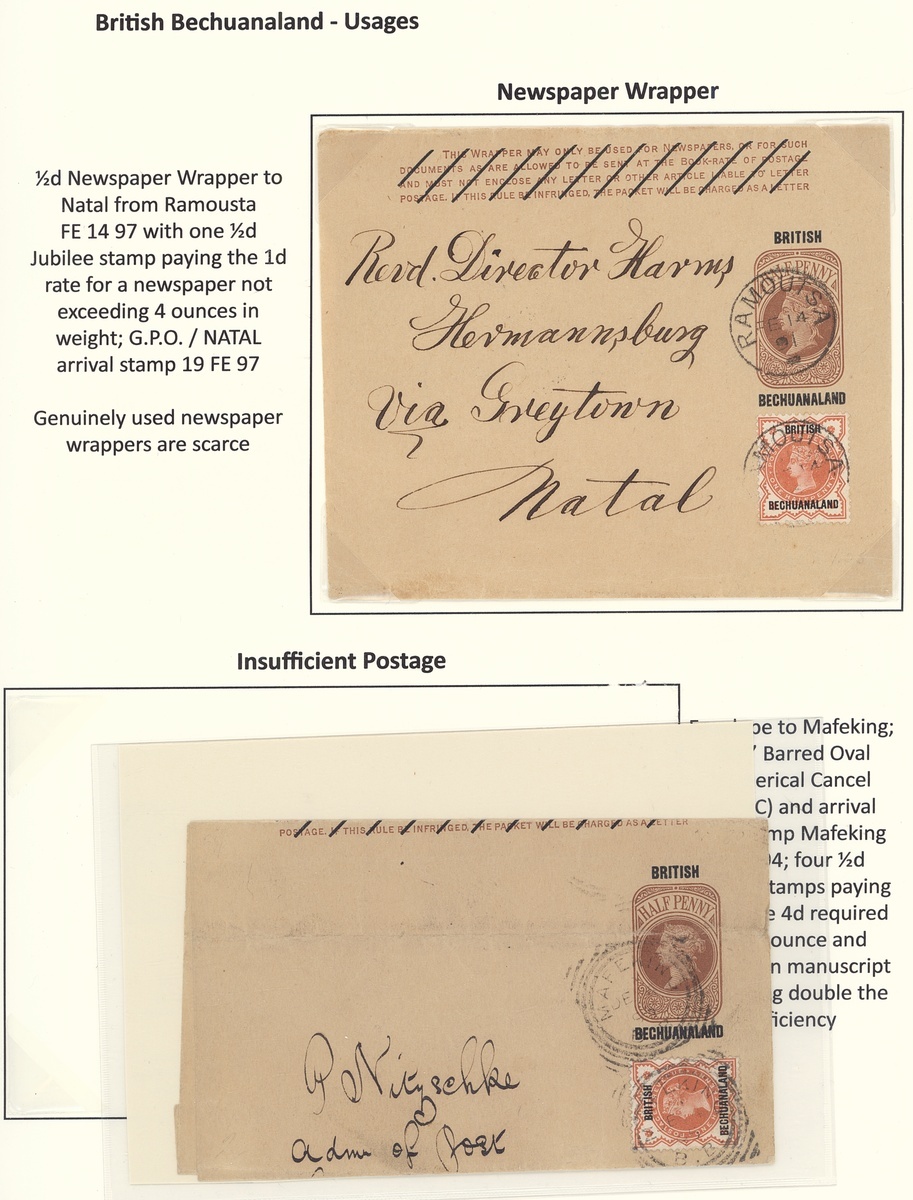 British Bechuanaland - Usages
Newspaper Wrapper
½d Newspaper Wrapper to
Natal from Ramousta
FE 14 97 with one ½d
Jubilee stamp paying the 1d
rate for a newspaper not
exceeding 4 ounces in
weight; G.P.O. / NATAL
arrival stamp 19 FE 97
Genuinely used newspaper
wrappers are scarce
THIS WRAPPER MAY ONLY BE USED FOR NEWSPAPERS, OR FOR SUCH
DOCUMENTS AS ARE ALLOWED TO BE SENT AT THE BOOK-RATE OF POSTAGE
AND MUST NOT ENCLOSE ANY LETTER OR OTHER ARTICLE LIABLE TO LETTER
POSTAGE. IF THIS RULE BE INFRINGED, THE PACKET WILL BE CHARGED AS A LETTER
BRITISH
HALF PENNY
RAMOUTSA
14
BECHUANALAND
Revd. Director Harms
Hermannsburg
Via Greytown
Natal
MOUTSA
BRITISH
BECHUANALAND
Insufficient Postage
pe to Mafeking;
Barred Oval
erical Cancel
C) and arrival
mp Mafeking
04; four ½d
tamps paying
e 4d required
ounce and
n manuscript
g double the
ficiency
POSTAGE. IF THIS RULE BE INFRINGED, THE PACKET WILL BE CHARGED AS A LETTER
BRITISH
HALF PENNY
MAFEKING
BECHUANALAND
P Nitzschke
Adme of Post
BRITISH
BECHUANALAND
B.B